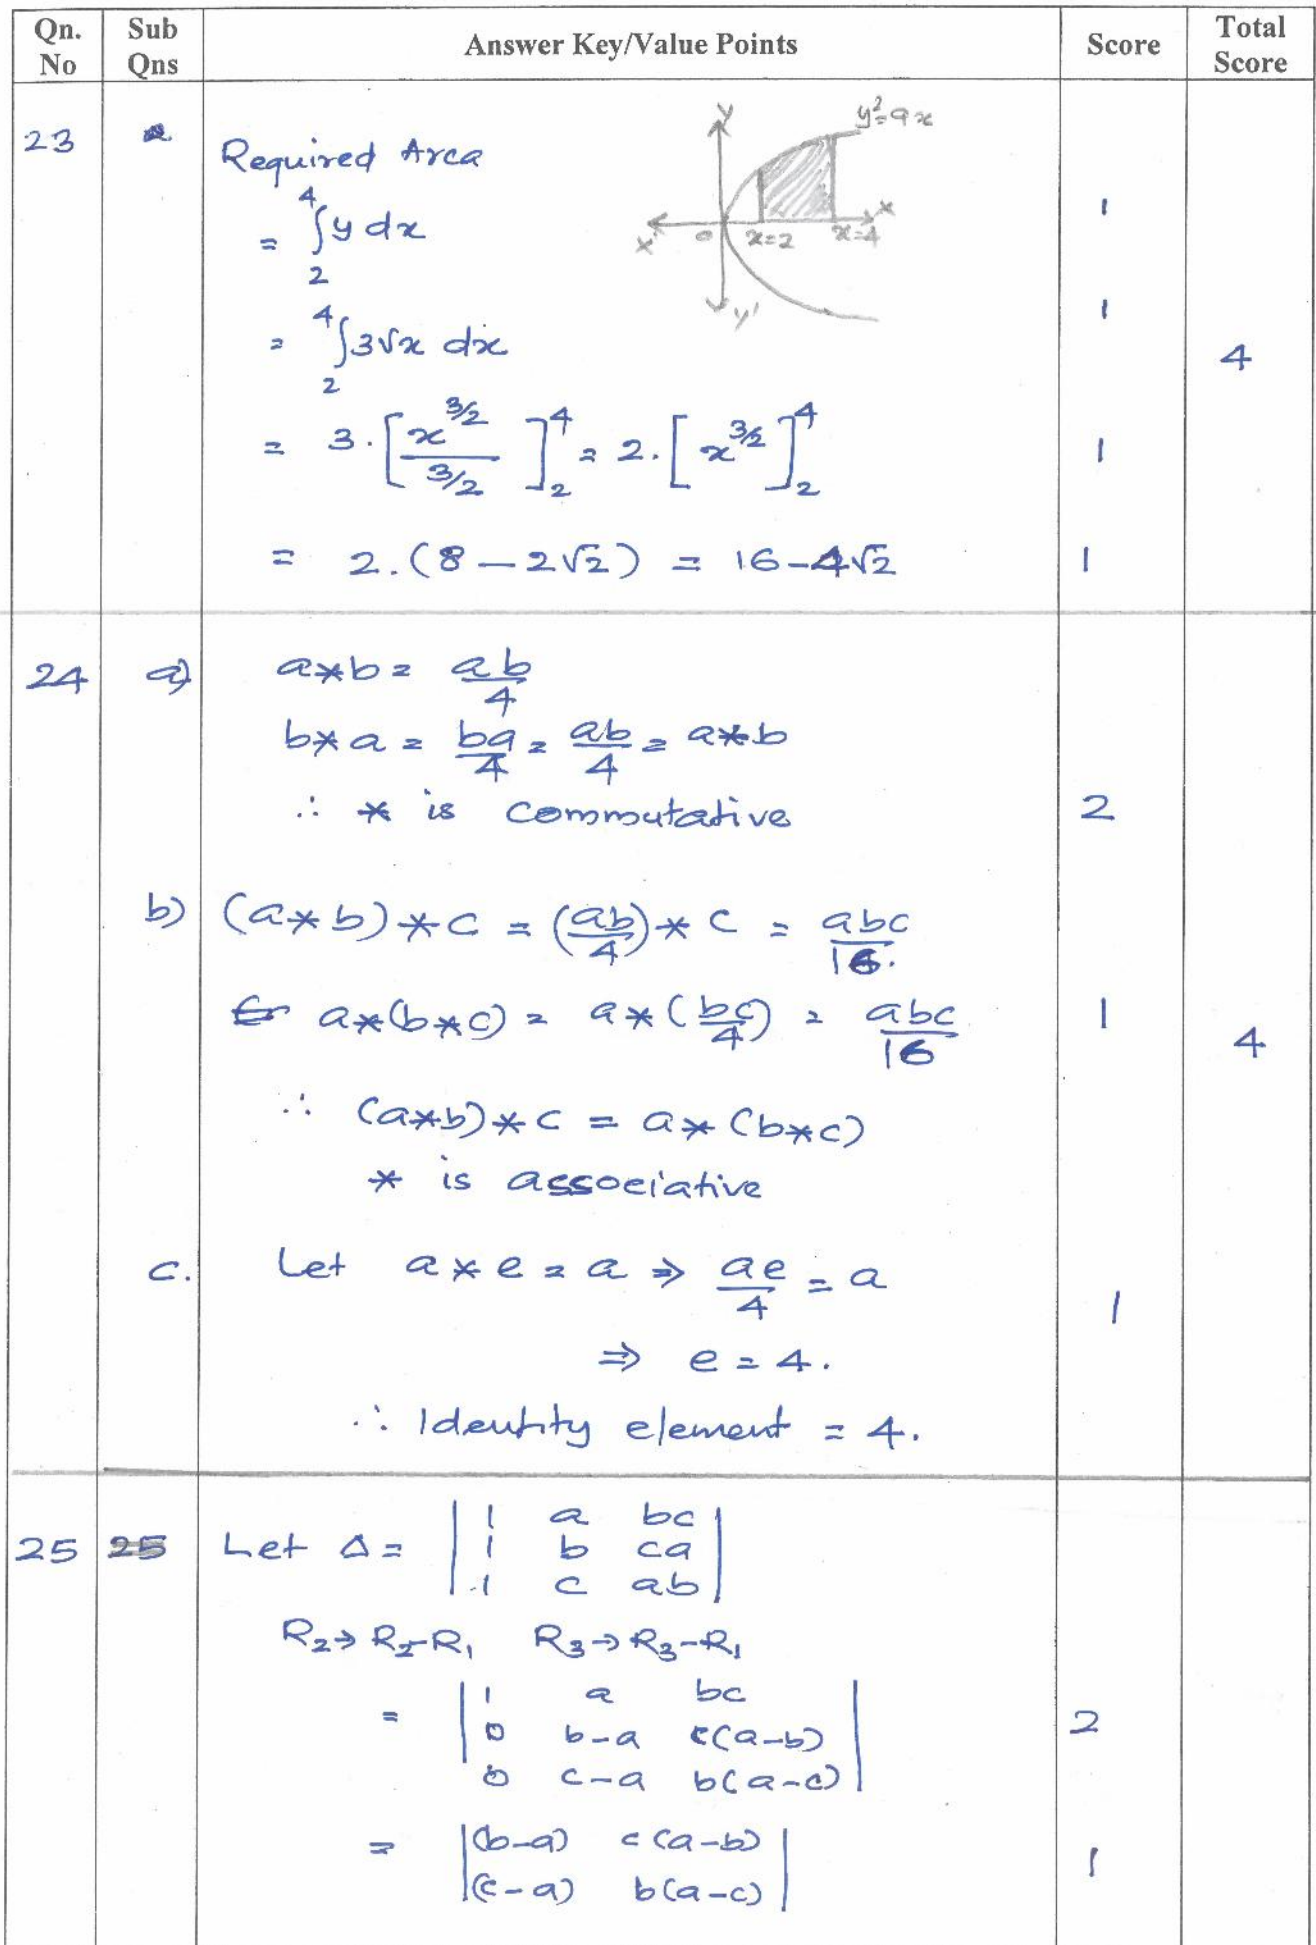 Qn. No Sub Qns Answer Key/Value Points Score Total Score
23
Required Area
y²=9x
Y
= ₂∫⁴ y dx 1
X' O x=2 x=4 X
Y'
= ₂∫⁴ 3√x dx 1
4
= 3·[x^(3/2) / (3/2)]₂⁴ = 2·[x^(3/2)]₂⁴ 1
= 2.(8-2√2) = 16-4√2 1
24 a) a*b = ab/4
b*a = ba/4 = ab/4 = a*b
∴ * is commutative 2
b) (a*b)*c = (ab/4)*c = abc/16.
a*(b*c) = a*(bc/4) = abc/16 1
4
∴ (a*b)*c = a*(b*c)
* is associative
c. Let a*e = a ⇒ ae/4 = a
1
⇒ e = 4.
∴ Identity element = 4.
25 25 Let Δ = | 1 a bc |
| 1 b ca |
| 1 c ab |
R₂→R₂-R₁ R₃→R₃-R₁
= | 1 a bc |
| 0 b-a c(a-b) | 2
| 0 c-a b(a-c) |
= |(b-a) c(a-b)|
|(c-a) b(a-c)| 1